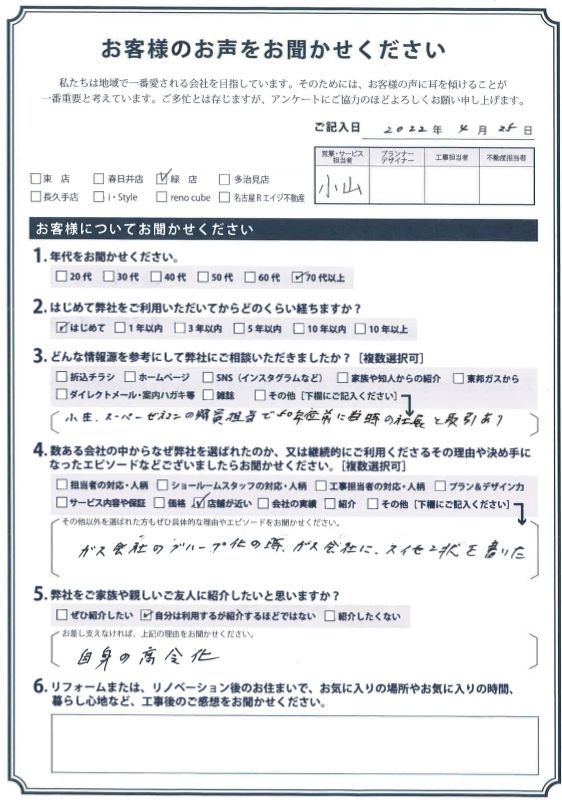 お客様のお声をお聞かせください
私たちは地域で一番愛される会社を目指しています。そのためには、お客様の声に耳を傾けることが
一番重要と考えています。ご多忙とは存じますが、アンケートにご協力のほどよろしくお願い申し上げます。
ご記入日 2022年 4月 25日
営業・サービス担当者 プランナーデザイナー 工事担当者 不動産担当者
小山
□東 店 □春日井店 ☑緑 店 □多治見店
□長久手店 □i・Style □reno cube □名古屋Rエイジ不動産
お客様についてお聞かせください
1. 年代をお聞かせください。
□20代 □30代 □40代 □50代 □60代 ☑70代以上
2. はじめて弊社をご利用いただいてからどのくらい経ちますか?
☑はじめて □1年以内 □3年以内 □5年以内 □10年以内 □10年以上
3. どんな情報源を参考にして弊社にご相談いただきましたか?[複数選択可]
□折込チラシ □ホームページ □SNS(インスタグラムなど) □家族や知人からの紹介 □東邦ガスから
□ダイレクトメール・案内ハガキ等 □雑誌 □その他[下欄にご記入ください]
小生、スーパーゼネコンの購買担当で50年程前に の社長と取引あり
4. 数ある会社の中からなぜ弊社を選ばれたのか、又は継続的にご利用くださるその理由や決め手に
なったエピソードなどございましたらお聞かせください。[複数選択可]
□担当者の対応・人柄 □ショールームスタッフの対応・人柄 □工事担当者の対応・人柄 □プラン&デザイン力
□サービス内容や保証 □価格 ☑店舗が近い □会社の実績 □紹介 □その他[下欄にご記入ください]
その他以外を選ばれた方もぜひ具体的な理由やエピソードをお聞かせください。
ガス会社のグループ化の時、ガス会社に、スイセン状を書いた
5. 弊社をご家族や親しいご友人に紹介したいと思いますか?
□ぜひ紹介したい ☑自分は利用するが紹介するほどではない □紹介したくない
お差し支えなければ、上記の理由をお聞かせください。
自身の高令化
6. リフォームまたは、リノベーション後のお住まいで、お気に入りの場所やお気に入りの時間、
暮らし心地など、工事後のご感想をお聞かせください。